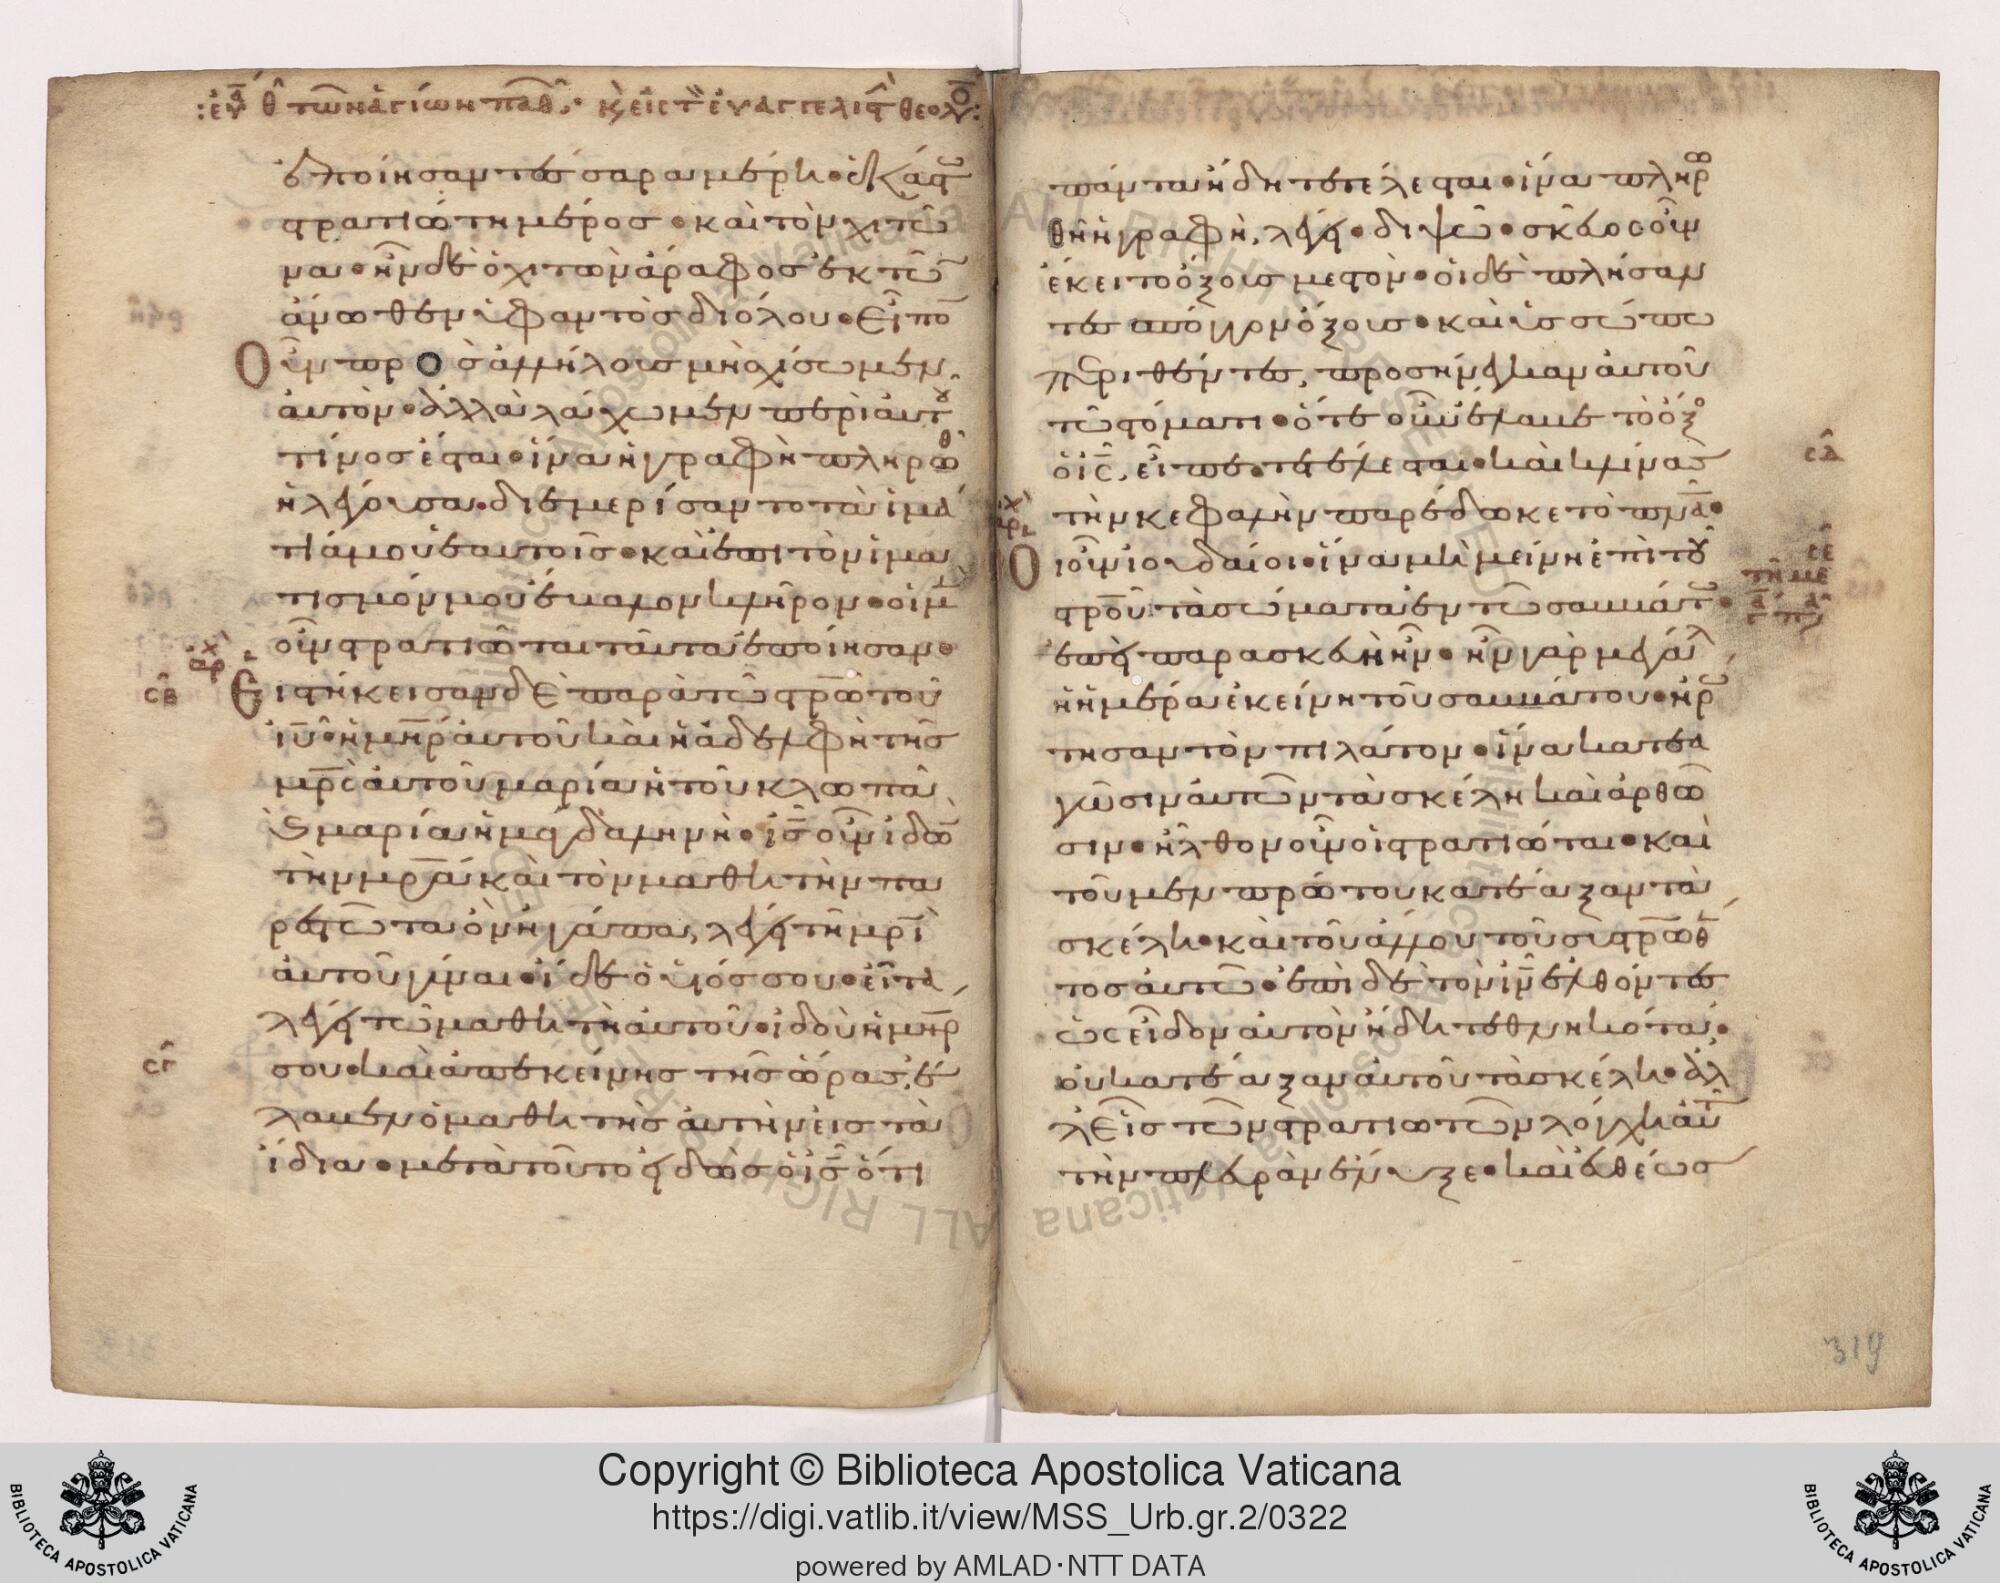 :εὐα θ τῶν ἁγίων παθ· κ, εἰς τ εὐαγγελιστ θεολο:
ἐποίησαν τέσσαρα μέρη· ἑκάστω
στρατιώτη μέρος· καὶ τὸν χιτῶ
να· ἦν δὲ ὁ χιτὼν ἄραφος ἐκ τῶ
ἄνωθεν ὑφαντὸς διόλου· Εἶπο
Οὖν πρὸς ἀλλήλους μὴ σχίσωμεν
αὐτὸν· ἀλλὰ λάχωμεν περὶ αὐτου
τίνος ἔσται· ἵνα ἡ γραφὴ πληρωθ
ἡ λέγουσα· διεμερίσαντο τὰ ἱμά
τιά μου ἑαυτοῖς· καὶ ἐπὶ τὸν ἱμα
τισμόν μου ἔβαλον κλῆρον· οἱ μ
οὖν στρατιῶται ταῦτα ἐποίησαν·
χ
αρ
σβ
Εἱστήκεισαν δὲ παρὰ τῶ στρω τοῦ
ιυ ἡ μηρ αὐτοῦ καὶ ἡ ἀδελφὴ τῆς
μρς αὐτοῦ μαρία ἡ τοῦ κλωπᾶ
ϗ μαρία ἡ μαγδαληνὴ· ις οὖν ἰδὼ
τὴν μρα καὶ τὸν μαθη τὴν πα
ρεστῶτα ὃν ἠγάπα, λέγει τῆ μρι
αὐτοῦ γύναι· ἴδε ὁ υἱός σου· εἶτα
λέγει τῶ μαθητῆ αὐτοῦ· ἰδοὺ ἡ μηρ
σγ
σου· καὶ ἀπεκείνης τῆς ὥρας, ἔ
λαβεν ὁ μαθητὴς αὐτὴν εἰς τὰ
ἴδια· μετὰ τοῦτο εἰδὼς ὁ ις ὅτι
πάντα ἤδη τετέλεσται· ἵνα πληρω
θῆ ἡ γραφὴ, λέγει· διψῶ· σκεῦος οὖν
ἔκειτο ὄξους μεστὸν· οἱ δὲ πλήσαν
τες σπόγγον ὄξους· καὶ ὑσσώπω
περιθέντες, προσήνεγκαν αὐτοῦ
τῶ στόματι· ὅτε οὖν ἔλαβε τὸ ὄξο
σδ
ὁ ις, εἶπε· τετέλεσται· καὶ κλίνας
τὴν κεφαλὴν παρέδωκε τὸ πνα·
χ
αρ
σε
Οἱ οὖν ἰουδαῖοι· ἵνα μὴ μείνη ἐπὶ του
τῆ με
στροῦ τὰ σώματα ἐν τῶ σαββάτω·
ἐπεὶ παρασκευὴ ἦν· ἦν γὰρ μεγάλ
ἡ ἡμέρα ἐκείνη τοῦ σαββάτου· ἠρώ
τησαν τὸν πιλάτον· ἵνα κατεα
γῶσιν αὐτῶν τὰ σκέλη καὶ ἀρθῶ
σιν· ἦλθον οὖν οἱ στρατιῶται· καὶ
τοῦ μὲν πρώτου κατέαξαν τὰ
σκέλη· καὶ τοῦ ἄλλου τοῦ συστρωθ
τος αὐτῶ· ἐπὶ δὲ τὸν ιν ἐλθόντες
ὡς εἶδον αὐτὸν ἤδη τεθνηκότα·
οὐ κατέαξαν αὐτοῦ τὰ σκέλη· ἀλ
λ εἷς τῶν στρατιωτῶν λόγχη αὐτ
τὴν πλευρὰν ἔνυξε· καὶ εὐθέως
319
Copyright © Biblioteca Apostolica Vaticana
https://digi.vatlib.it/view/MSS_Urb.gr.2/0322
powered by AMLAD·NTT DATA
BIBLIOTECA APOSTOLICA VATICANA
BIBLIOTECA APOSTOLICA VATICANA